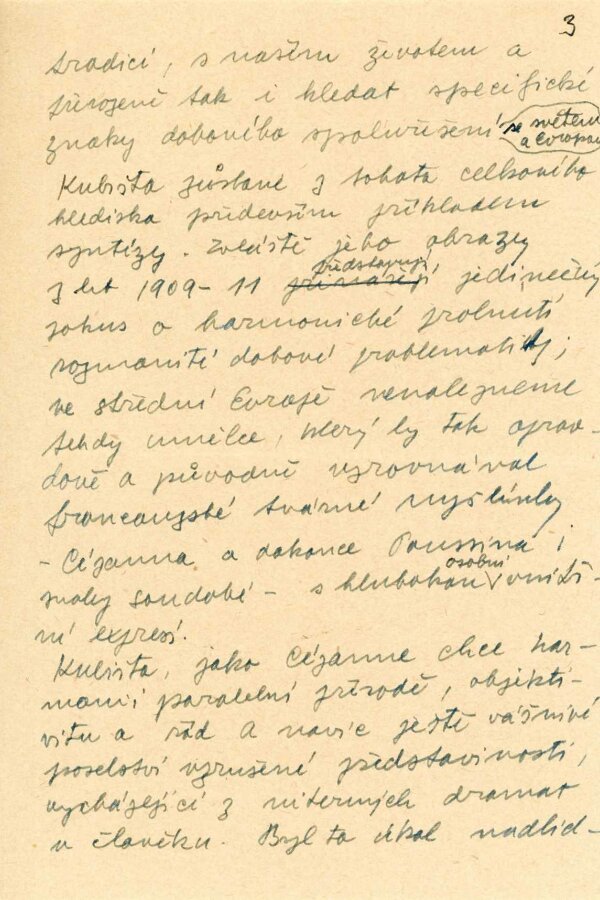 3
tradicí, s naším životem a
přirozeně tak i hledat specifické
znaky dobového spoluvůšení se světem
a Evropou
Kubišta zůstane z tohoto celkového
hlediska především příkladem
syntézy. Zvláště jeho obrazy
z let 1909-11 přinášejí představují jedinečný
pokus o harmonické prolnutí
rozmanité dobové problematiky;
ve střední Evropě nenalezneme
tehdy umělce, který by tak oprav-
dově a původně vyrovnával
francouzské tvárné myšlenky
- Cézanna a dokonce Poussina i
snahy soudobé - s hlubokou osobní vnitř-
ní expresí.
Kubišta, jako Cézanne chce har-
monii paralelní přírodě, objekti-
vitu a řád a navíc ještě vášnivé
poselství vzrušené představivosti,
vycházející z niterných dramat
v člověku. Byl to úkol nadlid-